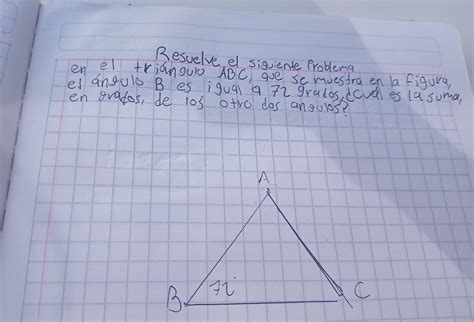 Resuelve el siguiente Problema
en el triángulo ABC, que se muestra en la figura,
el ángulo B es igual a 72 grados, ¿cuál es la suma,
en grados, de los otro dos angulos?
A
72
B
C